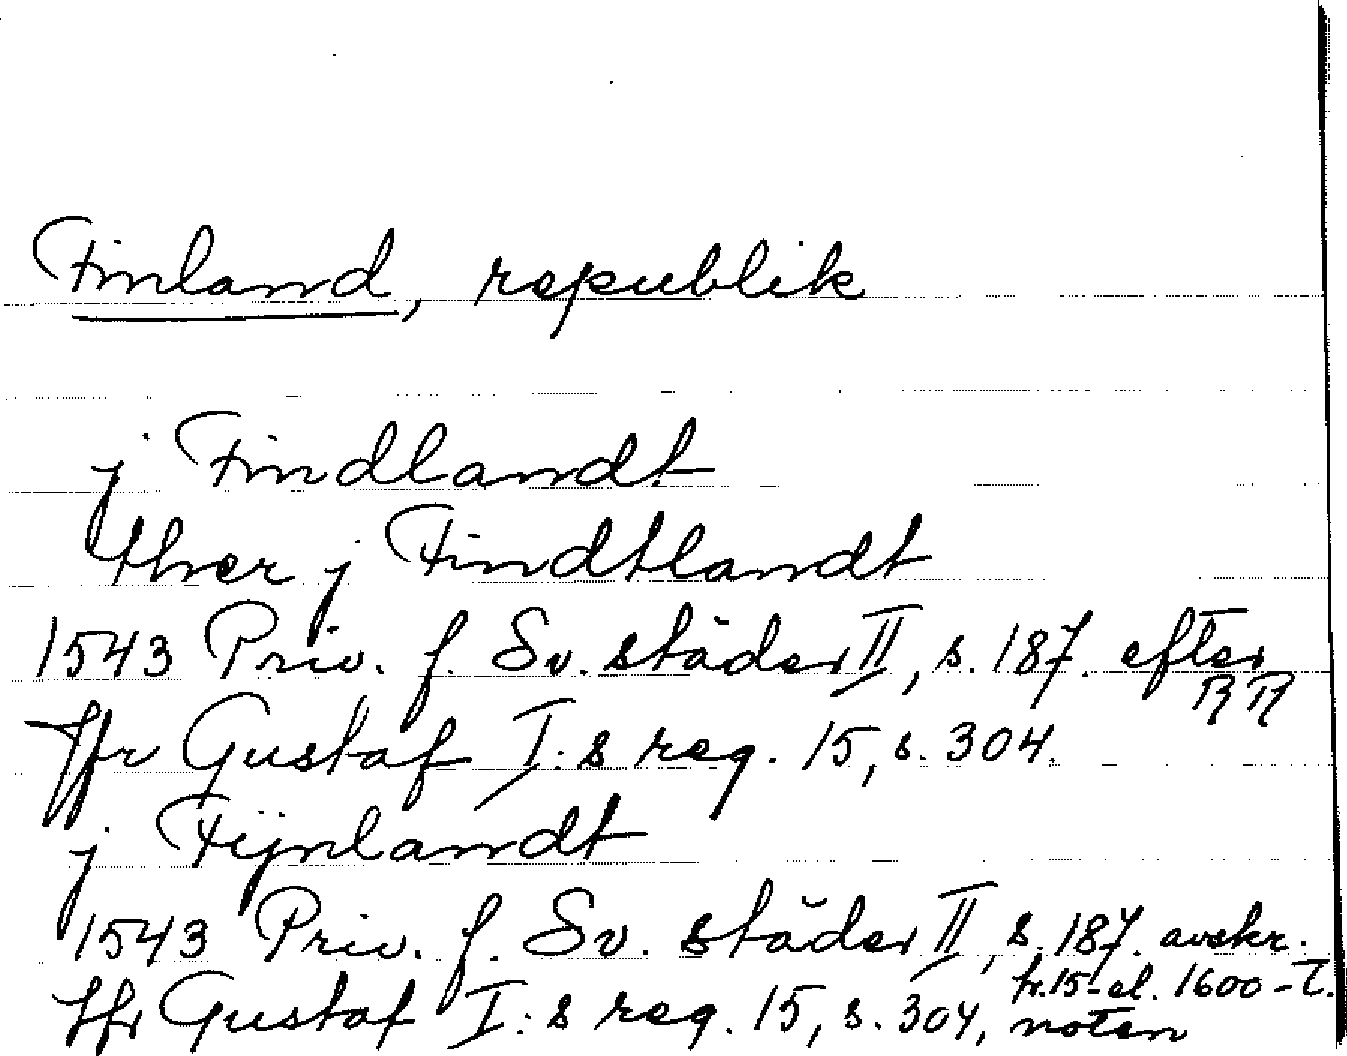 Finland, republik
j Findlandt
ther j Findtlandt
1543 Priv. f. Sv. städer II, s. 187. efter RR
Jfr Gustaf I:s reg. 15, s. 304.
j Fijnlandt
1543 Priv. f. Sv. städer II, s. 187. avskr. fr. 15- el. 1600-t.
Jfr Gustaf I:s reg. 15, s. 304, noten